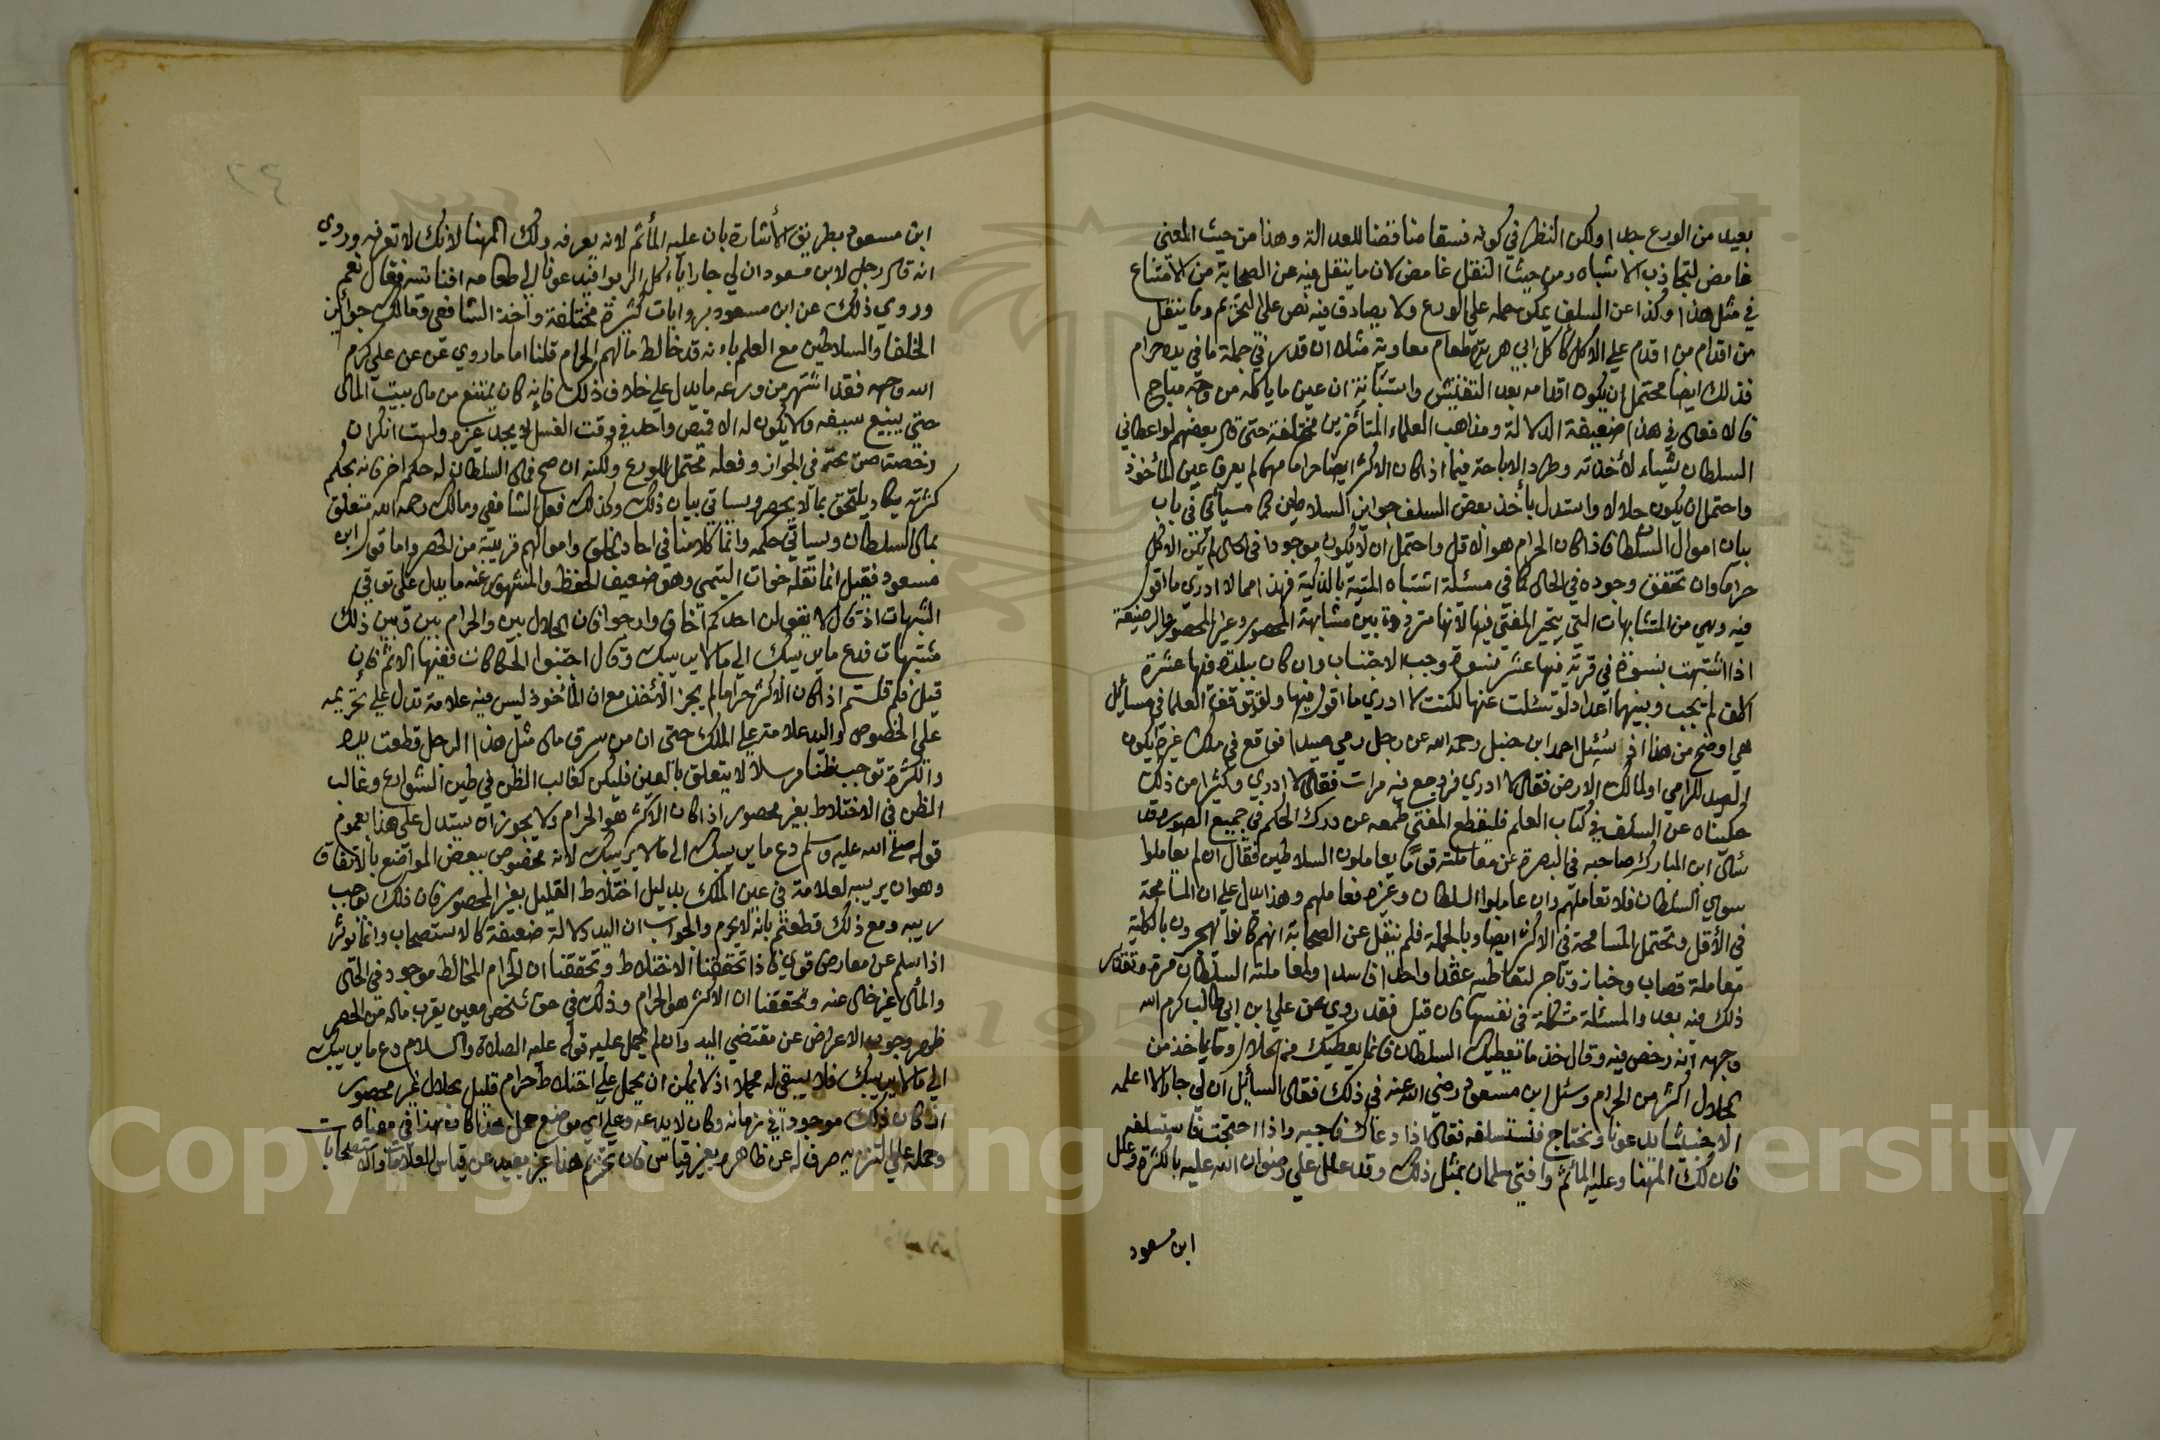 بعيد من الورع جدا ولكن النظر في كونه فسقا مناقضا للعدالة وهذا من حيث المعنى
غامض لتجاذب الاشباه ومن حيث النقل غامض لان ما ينقل فيه عن الصحابة من الامتناع
في مثل هذا وكذا عن السلف يمكن حمله علي الورع ولا يصادق فيه نص علي التحريم وما ينقل
من اقدام من اقدم علي الاكل كاكل ابي هريرة طعام معاوية مثلا ان قدر في جملة ما في يده حرام
فذلك ايضا محتمل ان يكون اقدامه بعد التفتيش واستبانة ان عين ما ياكله من وجه مباح
فالافعال في هذا ضعيفة الدلالة ومذاهب العلماء المتأخرين مختلفة حتى قال بعضهم لو اعطاني
السلطان شياء لأخذته وطرد الاباحة فيما اذا كان الاكثر ايضا حراما مهما لم يعرف عين المأخوذ
واحتمل ان يكون حلالا واستدل بأخذ بعض السلف جوايز السلاطين كما سيأتي في باب
بيان اموال السلطان فاذا كان الحرام هو الاقل واحتمل ان لا يكون موجودا في الحال لم يكن الاكل
حراما وان تحقق وجوده في الحال كما في مسئلة اشتباه الميتة بالذكية فهذا مما لا ادري ما اقول
فيه وهي من المتشابهات التي يتحير المفتي فيها لانها مترددة بين مشابهة المحصور وغير المحصور والرضيعة
اذا اشتبهت بنسوة في قرية فيها عشر نسوة وجب الاجتناب وان كان ببلدة فيها عشرة
الاف لم يجب وبينهما اعداد لو سئلت عنها لكنت لا ادري ما اقول فيها ولقد توقف العلما في مسائل
هي اوضح من هذا اذ سئل احمد ابن حنبل رحمه الله عن رجل رمي صيدا فوقع في ملك غيره ايكون
الصيد للرامي او لمالك الارض فقال لا ادري فروجع فيه مرات فقال لا ادري وكثيرا من ذلك
حكيناه عن السلف في كتاب العلم فليقطع المفتي طمعه عن درك الحكم في جميع الصور وقد
سأل ابن المبارك صاحبه في البصرة عن معاملته قوما يعاملون السلاطين فقال ان لم يعاملوا
سوي السلطان فلا تعاملهم وان عاملوا السلطان وغيره فعاملهم وهذا يدل علي ان المسامحة
في الأقل ويحتمل المسامحة في الاكثر ايضا وبالجملة فلم ينقل عن الصحابة انهم كانوا يهجرون بالكلية
معاملة قصاب وخباز وتاجر لتعاطيه عقدا واحدا فاسدا ولمعاملته السلطان مرة وتقدير
ذلك فيه بعد والمسئلة مشكلة في نفسها فان قيل فقد روي عن علي ابن ابي طالب كرم الله
وجهه انه رخص فيه وقال خذ ما يعطيك السلطان فانما يعطيك من الحلال وما ياخذ من
الحلال اكثر من الحرام وسئل ابن مسعود رضى الله عنه في ذلك فقال السائل ان لي جارا لا اعلمه
الا خبيثا يدعونا ونحتاج فنستسلفه فقال اذا دعاك فاجبه واذا احتجت فاستسلفه
فان لك المهنا وعليه المأثم وافتى سلمان بمثل ذلك وقد علل علي رضوان الله عليه بالكثرة وعلل
ابن مسعود
ابن مسعود بطريق الأشارة بان عليه المأثم لانه يعرفه ولك المهنا لانك لا تعرفه وروي
انه قال رجل لابن مسعود ان لي جارا يأكل الربوا فيدعونا الي طعامه افنأتيه فقال نعم
وروي ذلك عن ابن مسعود بروايات كثيرة مختلفة واخذ الشافعي ومالك جوائز
الخلفا والسلاطين مع العلم بانه قد خالط مالهم الحرام قلنا اما ما روي عن علي كرم
الله وجهه فقد اشتهر من ورعه ما يدل علي خلاف ذلك فانه كان يمتنع من مال بيت المال
حتي يبيع سيفه ولا يكون له الا قميص واحد في وقت الغسل لا يجد غيره ولست انكر ان
رخصته صريحة في الجواز وفعله محتمل للورع ولكنه ان صح فمال السلطان له حكم اخر فانه بحكم
كثرته يكاد يلتحق بما لا يحصر وسياتي بيان ذلك وكذلك فعل الشافعي ومالك رحمه الله متعلق
بمال السلطان وسياتي حكمه وانما كلامنا في احاد الخلق واموالهم قريبة من الحصر واما قول ابن
مسعود فقيل انما نقله خوات التيمي وهو ضعيف الحفظ والمشهور عنه ما يدل على توقي
الشبهات اذ قال لا يقولن احدكم اخاف وارجو فان الحلال بين والحرام بين وبين ذلك
مشتبهات فدع ما يريبك الي ما لا يريبك وقال اجتنبوا الحكاكات ففيها الاثم فان
قيل فلم قلتم اذا كان الاكثر حراما لم يجز الأخذ مع ان المأخوذ ليس فيه علامة تدل علي تحريمه
علي الخصوص واليد علامة علي الملك حتى ان من سرق مال مثل هذا الرجل قطعت يده
والكثرة توجب ظنا مرسلا لا يتعلق بالعين فليكن كغالب الظن في طين الشوارع وغالب
الظن في الاختلاط بغير محصور اذا كان الاكثر هو الحرام ولا يجوز ان يستدل علي هذا بعموم
قوله صلي الله عليه وسلم دع ما يريبك الى ما لا يريبك لانه مخصوص ببعض المواضع بالاتفاق
وهو ان يريبه لعلامة في عين الملك بدليل اختلاط القليل بغير المحصور فان ذلك توجب
ريبه ومع ذلك قطعتم بانه لا يحرم والجواب ان اليد دلالة ضعيفة كالاستصحاب وانما تؤثر
اذا سلم عن معارض قوي فاذا تحققنا الاختلاط وتحققنا ان الحرام المخالط موجود في الحال
والمال غير خال عنه وتحققنا ان الاكثر هو الحرام وذلك في حق شخص معين يقرب ماله من الحصر
ظهر وجوب الاعراض عن مقتضي اليد وان لم يحمل عليه قوله عليه الصلاة والسلام دع ما يريبك
الي ما لا يريبك فلا يبقى له محملا اذ لا يمكن ان يحمل علي اختلاط حرام قليل بحلال غير محصور
اذ كان ذلك موجودا في زمانه وكان لا يدعه وعلي اي موضع حمل هذا كان هذا في معناه
وحمله علي التنزيه صرف له عن ظاهره بغير قياس فان تحريم هذا غير بعيد عن قياس العلامات والاستصحابات
Copyright © King Saud University